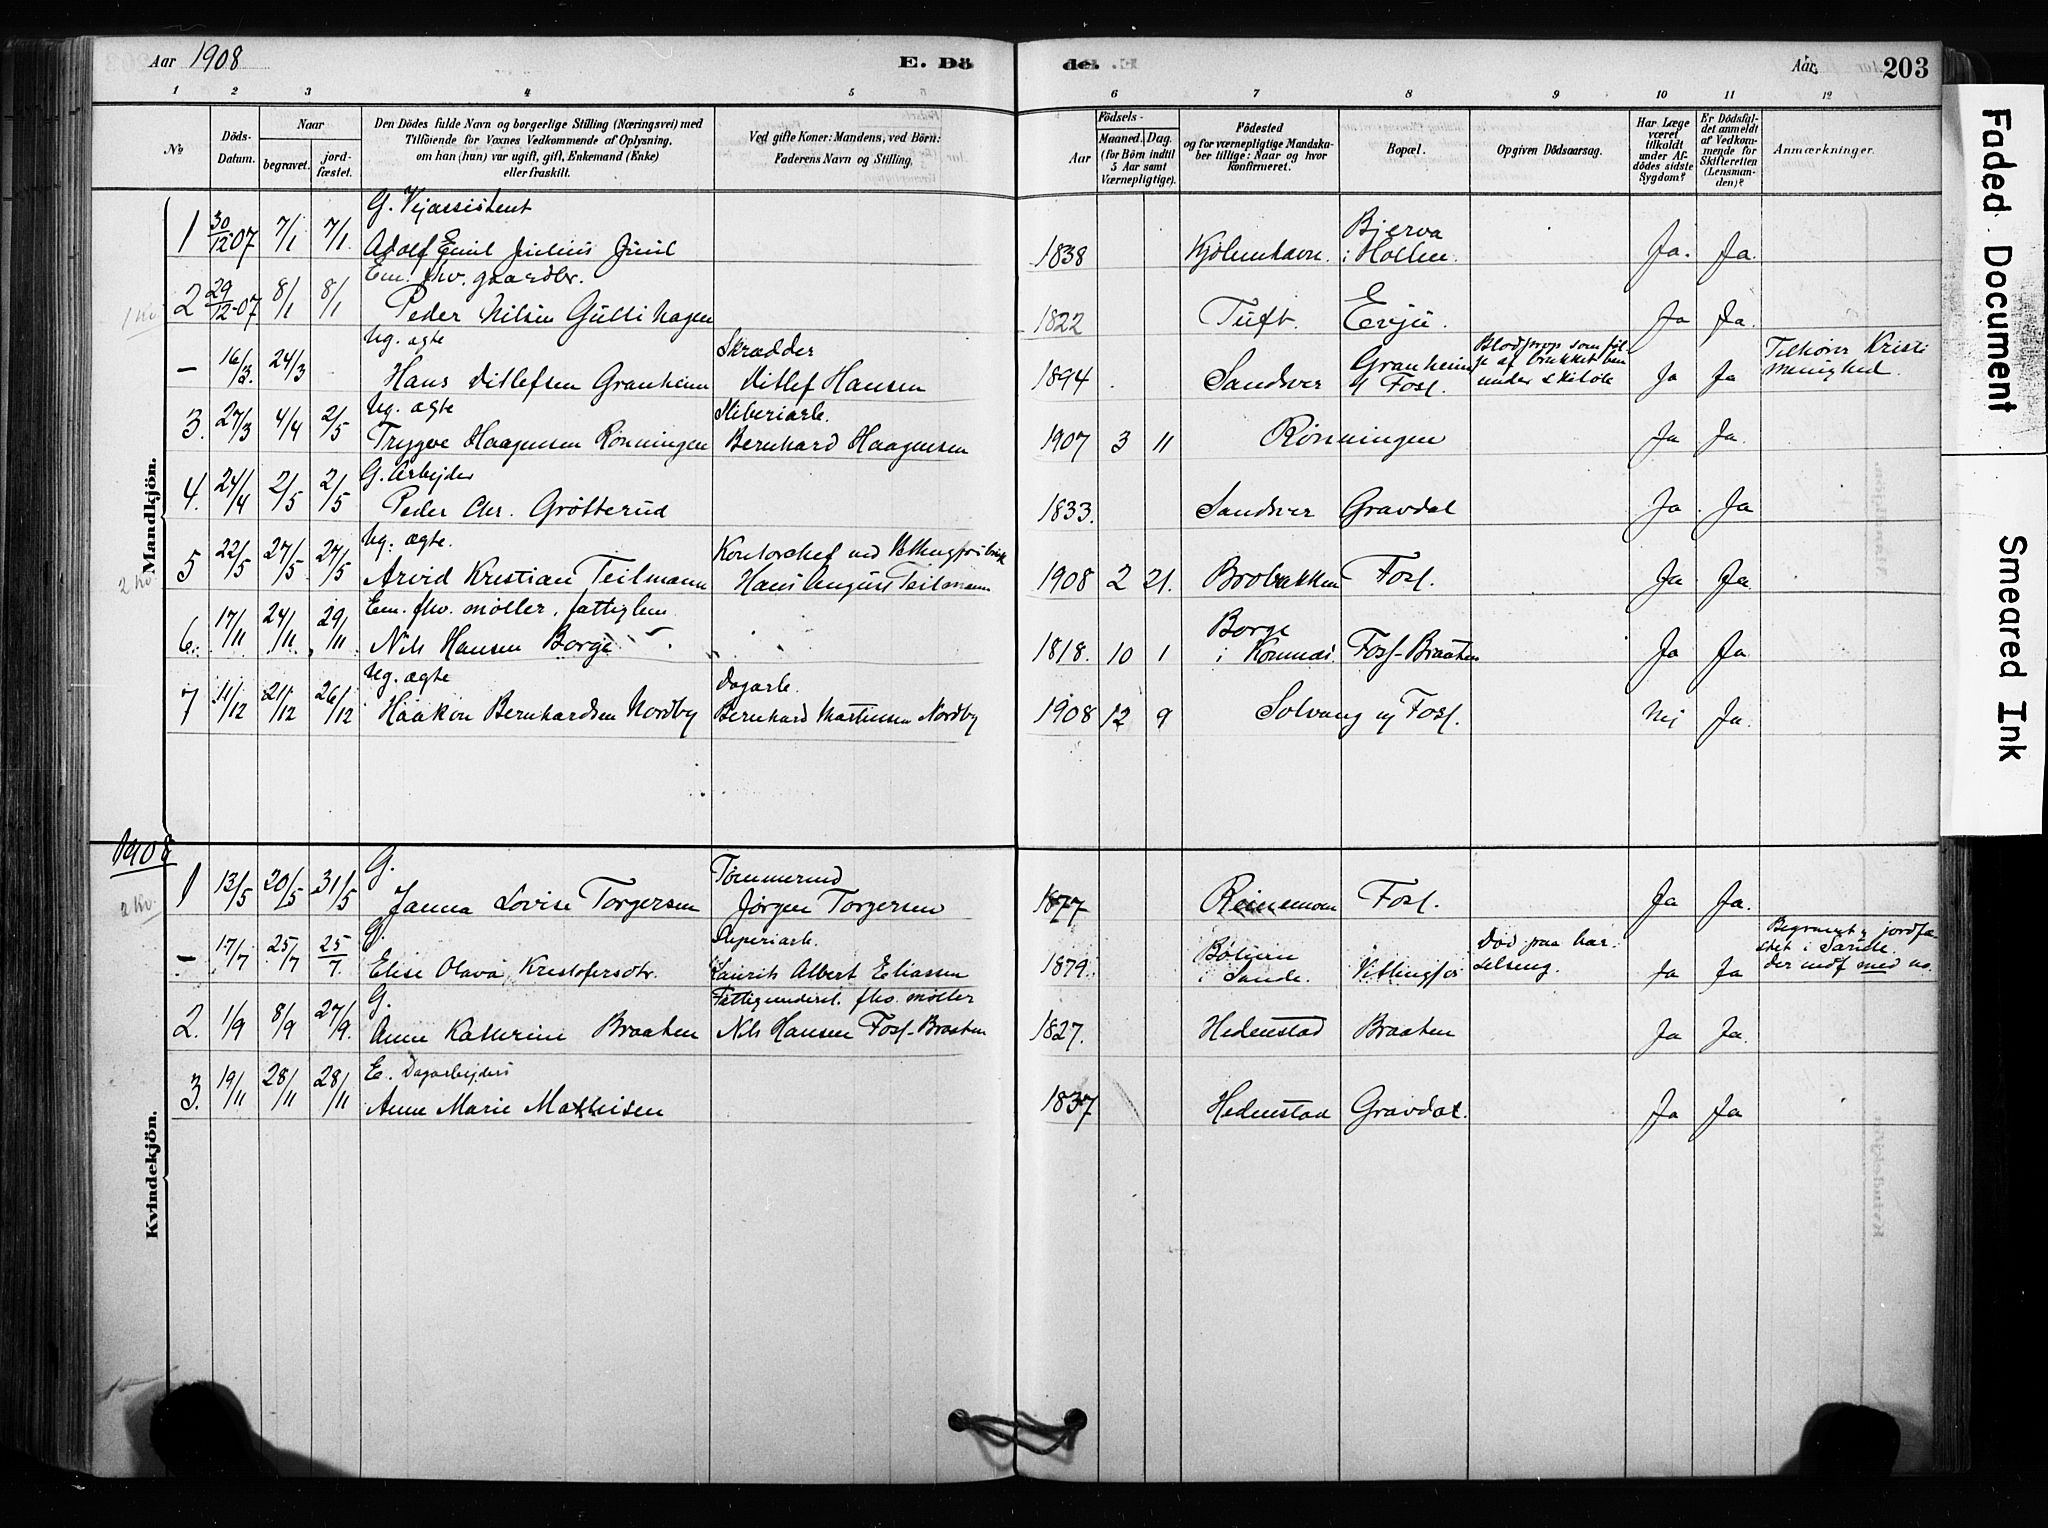 Aar 1908
E. Dö
de.
Aar.
203
1 2 3 4 5
6 7 8 9 10 11 12
No.
Döds-
Datum.
Naar
begravet.
jord-
fæstet.
Den Dödes fulde Navn og borgerlige Stilling (Næringsvei) med
Tilföiende for Voxnes Vedkommende af Oplysning,
om han (hun) var ugift, gift, Enkemand (Enke)
eller fraskilt.
Ved gifte Koner: Mandens, ved Börn:
Faderens Navn og Stilling.
Födsels-
Aar
Maaned.
Dag.
(for Börn indtil
5 Aar samt
Værnepligtige).
Födested
og for værnepligtige Mandska-
ber tillige: Naar og hvor
konfirmeret.
Bopæl.
Opgiven Dödsaarsag.
Har Læge
været
tilkaldt
under Af-
dödes sidste
Sygdom?
Er Dödsfal-
det anmeldt
af Vedkom-
mende for
Skifteretten
(Lensman-
den)?
Anmærkninger.
Mandkjön.
G. Vejassistent
1 30/12-07 7/1 7/1 Adolf Emil Julius Juul 1838 Kjøbenhavn. Bjerva i Hollen. Ja. Ja.
Em. fhv. gaardbr.
2 29/12-07 8/1 8/1 Peder Nilsen Gullihagen 1822 Tuft. Evju. Ja Ja.
Ug. ægte Skrædder
- 16/3. 24/3 Hans Ditlefsen Granheim Ditlef Hansen 1894 Sandsver Granheim / Foss. Blodprop som føl-
ge af brukket ben
under skiløb Ja Ja Tilhører Kristi
menighed.
Ug. ægte Sliberiarb.
3. 27/3 4/4 2/5 Trygve Haagensen Rønningen Bernhard Haagensen 1907 3 11 Rønningen Ja Ja.
G. Arbejder
4. 24/4 2/5 2/5 Peder Chr. Grøtterud 1833. Sandsver Gravdal Ja Ja
Ug. ægte. Kontorchef ved
5 22/5 27/5 27/5 Arvid Kristian Teilmann Hans August Teilmann 1908 2 21. Brobakken Foss. Ja Ja.
Em. fhv. møller, fattiglem
6. 17/11 24/11 29/11 Nils Hansen Borge 1818. 10 1 Borge
i Komnes. Foss-Braaten Ja Ja.
Ug. ægte Dagarb.
7 11/12 21/12 26/12 Haakon Bernhardsen Nordby Bernhard Martinsen Nordby 1908 12 9 Solvang v/ Foss. Nej Ja.
1908
Kvindekjön.
G. Tømmermd
1 13/5 20/5 31/5 Janna Lovise Torgersen Jørgen Torgersen 1877 Reinemoen Foss. Ja Ja.
G. Papiriarb.
- 17/7 25/7 25/7. Elise Olava Kristofersdtr. Laurits Albert Eliassen 1879. i Sande. Vittingfos Død paa bar-
selseng. Ja Ja Begravet & jordfæ-
stet i Sande.
G. Fattigunderst. fhv. møller
2. 1/9 8/9 27/9. Anne Katherine Braaten Nils Hansen Foss-Braaten 1827. Hedenstad Braaten Ja Ja.
E. Dagarbejders
3. 19/11 28/11 28/11 Anne Marie Mathisen 1837 Hedenstad Gravdal. Ja Ja
Faded Document
Smeared Ink